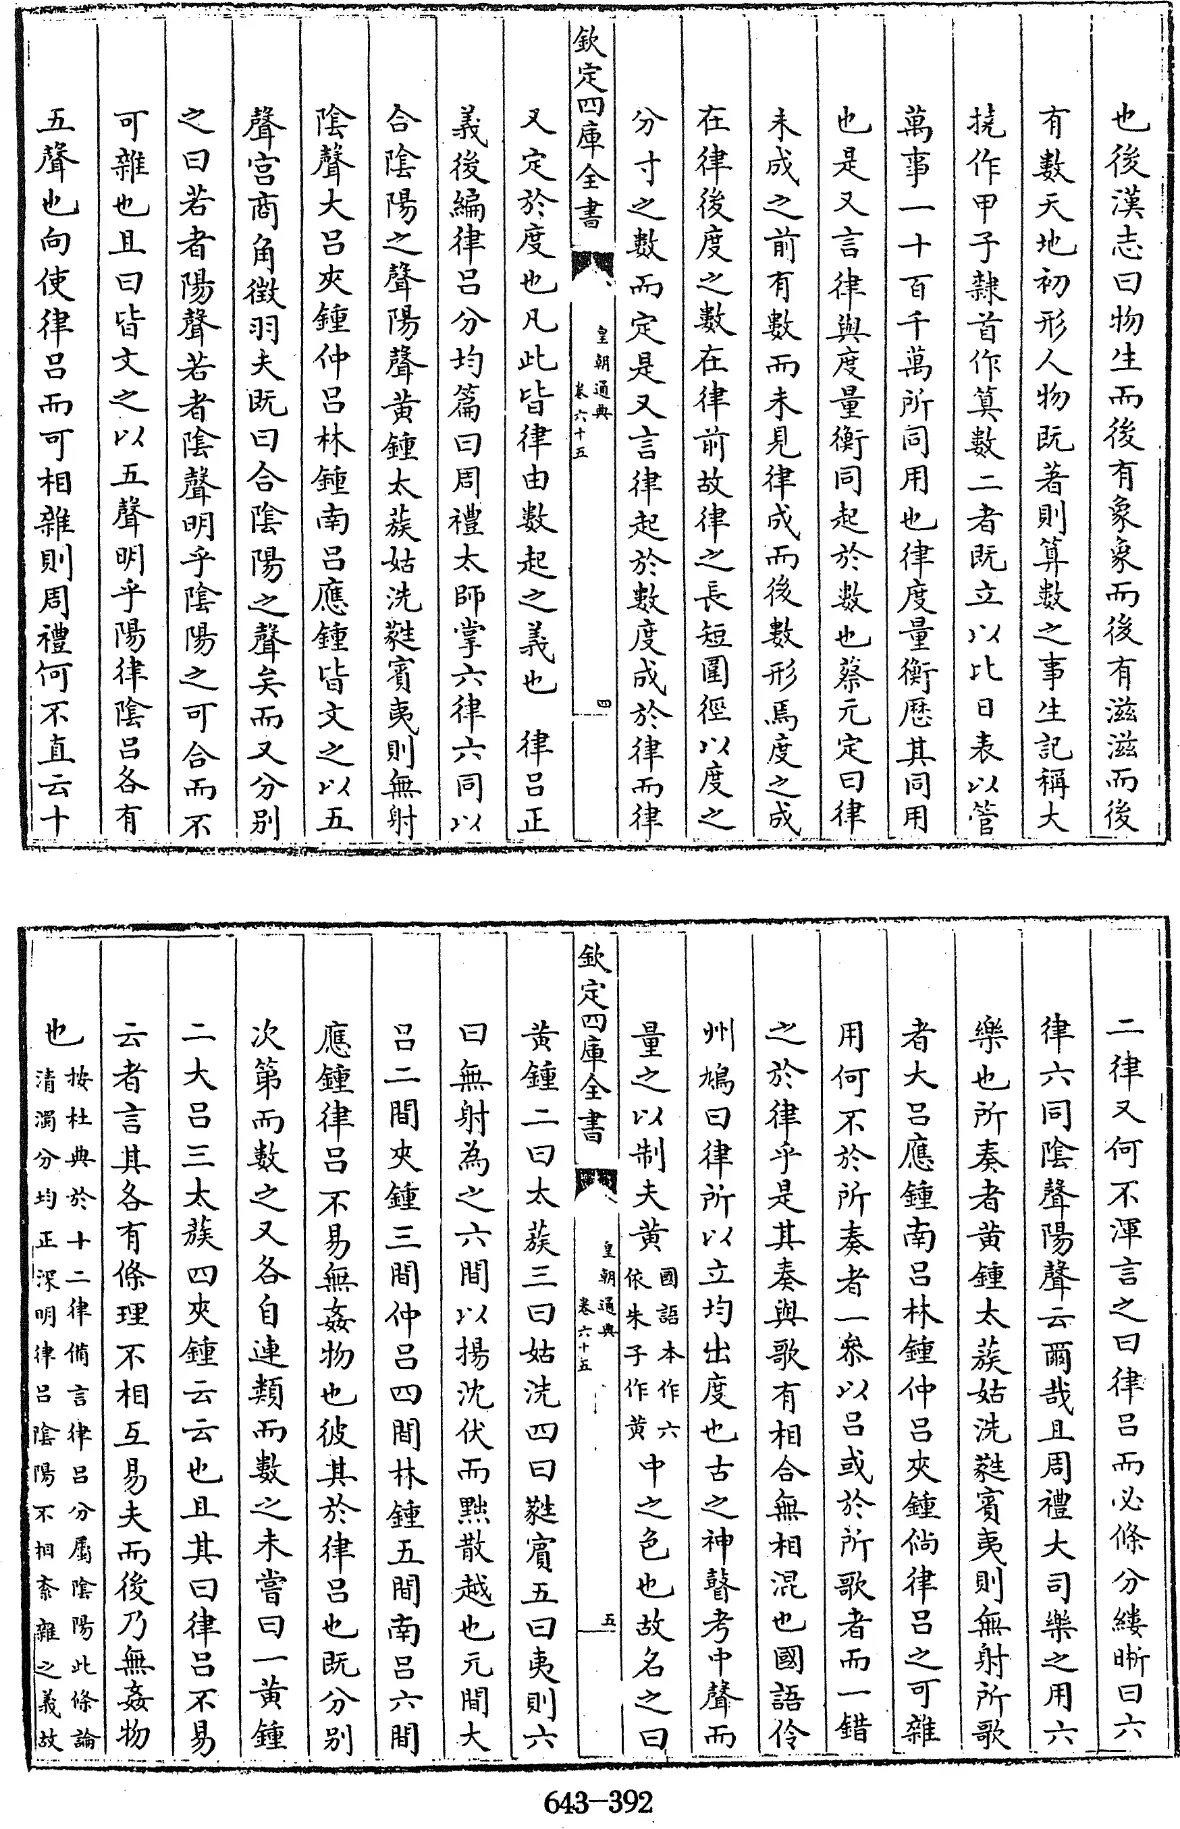 也後漢志曰物生而後有象象而後有滋滋而後
有數天地初形人物既著則算數之事生記稱大
撓作甲子隸首作算數二者既立以比日表以管
萬事一十百千萬所同用也律度量衡歷其同用
也是又言律與度量衡同起於數也蔡元定曰律
未成之前有數而未見律成而後數形焉度之成
在律後度之數在律前故律之長短圍徑以度之
分寸之數而定是又言律起於數度成於律而律
欽定四庫全書
皇朝通典
卷六十五
四
又定於度也凡此皆律由數起之義也　律呂正
義後編律呂分均篇曰周禮太師掌六律六同以
合陰陽之聲陽聲黃鍾太蔟姑洗蕤賓夷則無射
陰聲大呂夾鍾仲呂林鍾南呂應鍾皆文之以五
聲宮商角徵羽夫既曰合陰陽之聲矣而又分別
之曰若者陽聲若者陰聲明乎陰陽之可合而不
可雜也且曰皆文之以五聲明乎陽律陰呂各有
五聲也向使律呂而可相雜則周禮何不直云十
二律又何不渾言之曰律呂而必條分縷晰曰六
律六同陰聲陽聲云爾哉且周禮大司樂之用六
樂也所奏者黃鍾太蔟姑洗蕤賓夷則無射所歌
者大呂應鍾南呂林鍾仲呂夾鍾倘律呂之可雜
用何不於所奏者一叅以呂或於所歌者而一錯
之於律乎是其奏與歌有相合無相混也國語伶
州鳩曰律所以立均出度也古之神瞽考中聲而
量之以制夫黃國語本作六依朱子作黄中之色也故名之曰
欽定四庫全書
皇朝通典
卷六十五
五
黃鍾二曰太蔟三曰姑洗四曰蕤賓五曰夷則六
曰無射為之六間以揚沈伏而黜散越也元間大
呂二間夾鍾三間仲呂四間林鍾五間南呂六間
應鍾律呂不易無姦物也彼其於律呂也既分別
次第而數之又各自連類而數之未嘗曰一黃鍾
二大呂三太蔟四夾鍾云云也且其曰律呂不易
云者言其各有條理不相互易夫而後乃無姦物
也按杜典於十二律備言律呂分屬陰陽此條論
清濁分均正深明律呂陰陽不相紊雜之義故
643-392